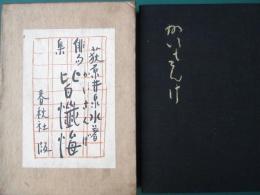 荻原井泉水著
かいさんげ
俳句集
皆懺悔
春秋社版
かいさんげ